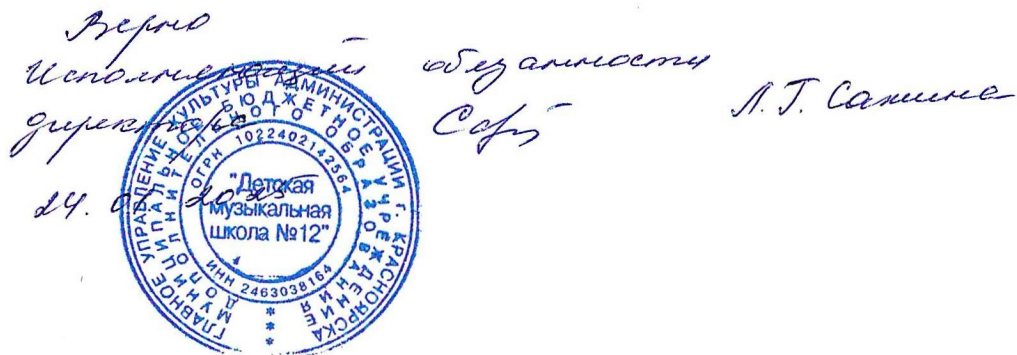 Верно
Исполняющий обязанности
директора
Л.Г. Санина
24. 2025
ГЛАВНОЕ УПРАВЛЕНИЕ КУЛЬТУРЫ АДМИНИСТРАЦИИ г. КРАСНОЯРСКА
МУНИЦИПАЛЬНОЕ БЮДЖЕТНОЕ УЧРЕЖДЕНИЕ
ДОПОЛНИТЕЛЬНОГО ОБРАЗОВАНИЯ
ОГРН 1022402142564
"Детская
музыкальная
школа №12"
ИНН 2463038164
* * *